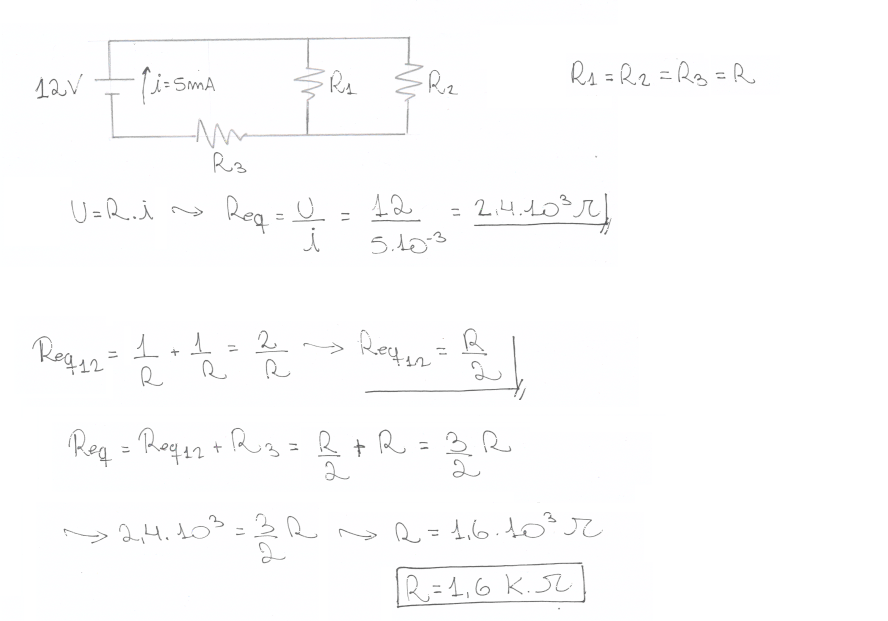 12V i=5mA R1 R2 R1=R2=R3=R
R3
U=R.i ⇝ Req = U/i = 12/5.10^-3 = 2,4.10³ Ω
Req12 = 1/R + 1/R = 2/R ⇝ Req12 = R/2
Req = Req12 + R3 = R/2 + R = 3/2 R
⇝ 2,4.10³ = 3/2 R ⇝ R = 1,6.10³ Ω
R=1,6 K.Ω